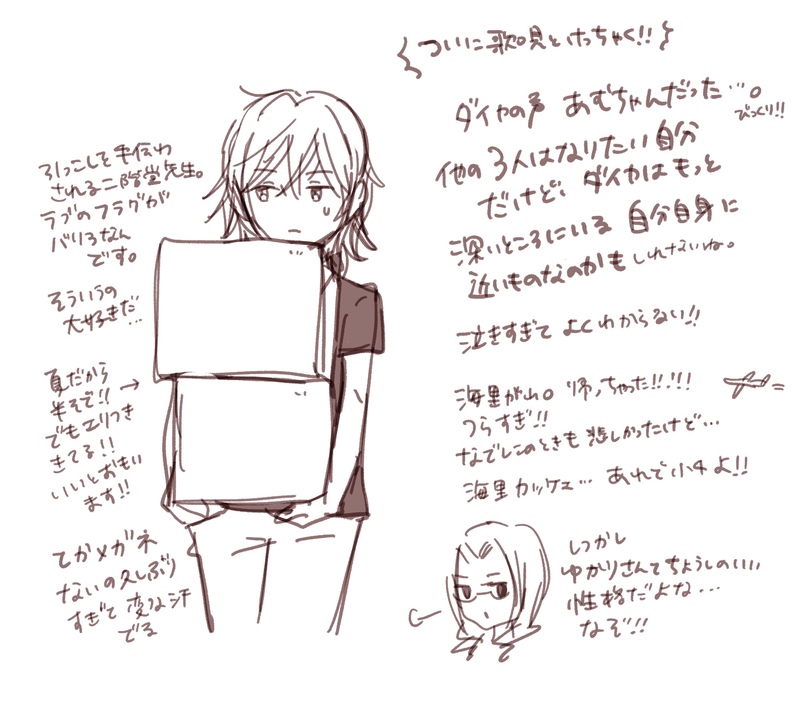 ついに歌唄とけっちゃく!!
ダイヤの声 あむちゃんだった…。
びっくり!!
他の3人はなりたい自分
だけど、ダイヤはもっと
深いところにいる 自分自身に
近いものなのかもしれないね。
泣きすぎて よくわからない!!
海里が山。帰っちゃった!!!!
つらすぎ!!
なでしこのときも 悲しかったけど…
海里カッケェ… あれで小4よ!!
しっかし
ゆかりさんてちょうしのいい
性格だよな…
なぞ!!
引っこしを手伝わ
される二階堂先生。
ラブのフラグが
バリ3なん
です。
そういうの
大好きだ…
夏だから →
半そで!!
でもエリつき
きてる!!
いいとおもい
ます!!
てかメガネ
ないの久しぶり
すぎて 変な汗
でる